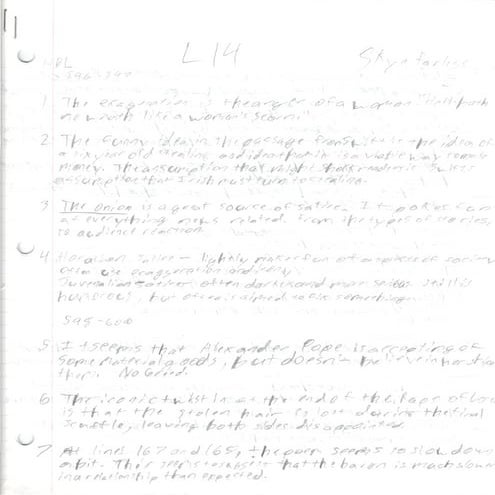 L14
596-597
1 The exageration is the anger of a woman "Hell hath
no wrath like a woman's scorn"
2 The funny idea in the passage from is the idea of
a six year old stealing and idea that it is a viable way to make
money. The assumption that
assumption that I must turn to stealing.
3 The Onion is a great source of satire. It pokes fun
at everything news related. From the types of stories,
to audience reaction.
4 Horatian Satire - lightly makes fun of aspects of society
often use exaggeration and irony
Juvenalian Satire often darker and more serious still is
humorous, but often is aimed to
595-600
5 It seems that Alexander Pope is accepting of
some material goods, but doesn't believe in
them. No Greed.
6 The ironic twist is at the end of the Rape of Lock
is that the stolen hair is lost during the final
scuffle, leaving both sides disappointed.
7 At lines 167 and 168, the poem seems to slow down
a bit. This seems to suggest that the baron is much slower
in a relationship than expected.